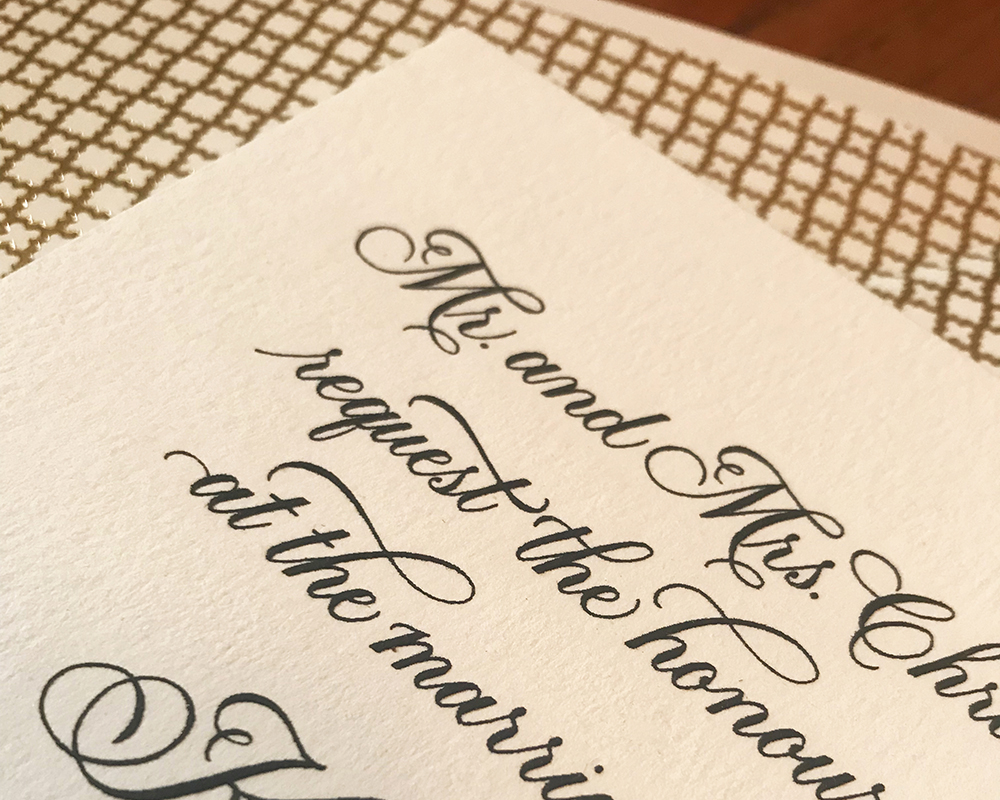 Mr. and Mrs. Chri
request the honour
at the marri